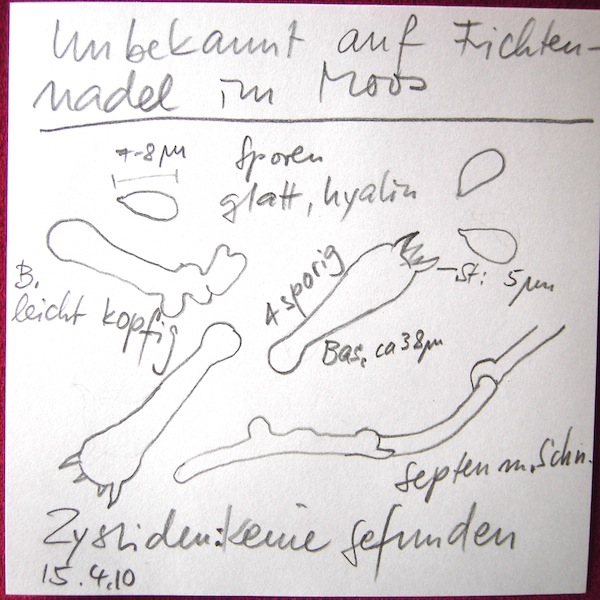 Unbekannt auf Fichten-
nadel im Moos
7-8 µm
Sporen
glatt, hyalin
B.
leicht kopfig
4 sporig
St: 5 µm
Bas. ca 38 µm
Septen m. Schn.
Zystiden: keine gefunden
15.4.10